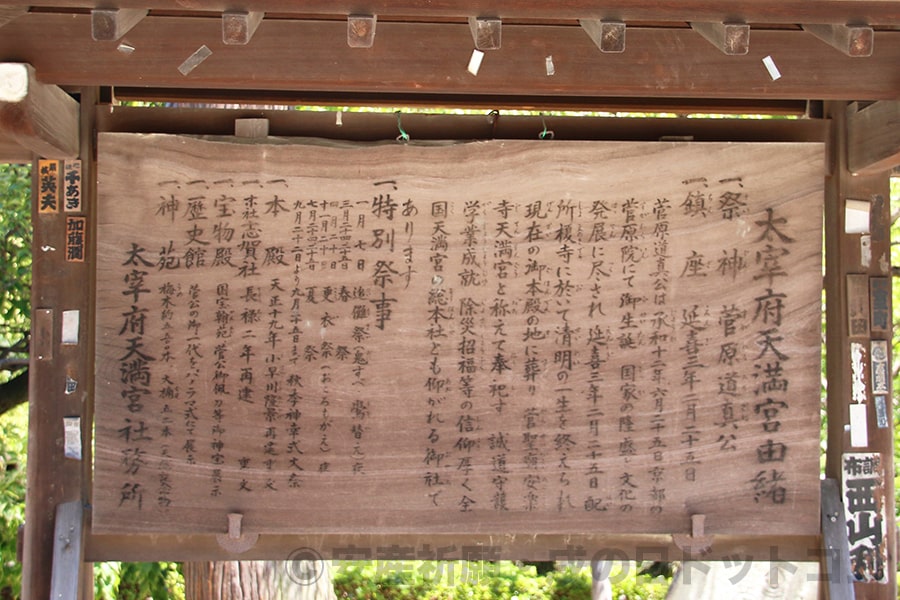 太宰府天満宮由緒
一、祭神 菅原道真公
一、鎮座 延喜三年二月二十五日
菅原道真公は承和十二年六月二十五日京都の
菅原院にて御生誕 国家の隆盛 文化の
発展に尽され 延喜三年二月二十五日配
所榎寺に於いて清明の一生を終えられ
現在の御本殿の地に葬り 菅聖廟 安楽
寺天満宮と称えて奉祀す 誠道守護
学業成就 除災招福等の信仰厚く全
国天満宮の総本社とも仰がれる御社で
あります
一、特別祭事
一月七日 追儺祭 鬼すべ 鷽替え
三月 春祭
四月二十日 更衣祭(おころもがえ)
十一月二十日
七月二十四二十五日 夏祭
九月二十一日より九月二十五日まで 秋季神幸式大祭
一、本殿 天正十九年 小早川隆景再建 重文
一、末社志賀社 長禄二年再建 重文
一、宝物殿 国宝翰苑 菅公御佩刀等御神宝展示
一、歴史館 菅公の御一代をパノラマ式にて展示
一、神苑 梅木約五千本 大樟五二本
太宰府天満宮社務所
英夫
千あき
加藤潤
西山利
©安産祈願・戌の日ドットコム